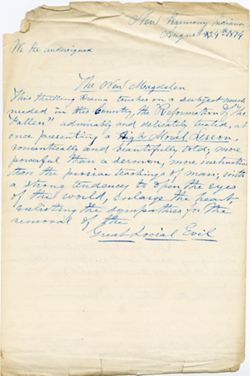 New Harmony Indiana
August 24th 1874
We the undersigned
The New Magdalen
This thrilling drama touches on a subject much
needed in this Country, the Reformation of the
"Fallen" admirably and delicately treated, at
once presenting a High Moral Lesson,
romantically and beautifully told, more
powerful than a sermon, more instructive
than the prosaic teachings of man; with
a strong tendency to open the eyes
of the world, enlarge the heart,
enlisting the sympathies for the
removal of the
Great Social Evil